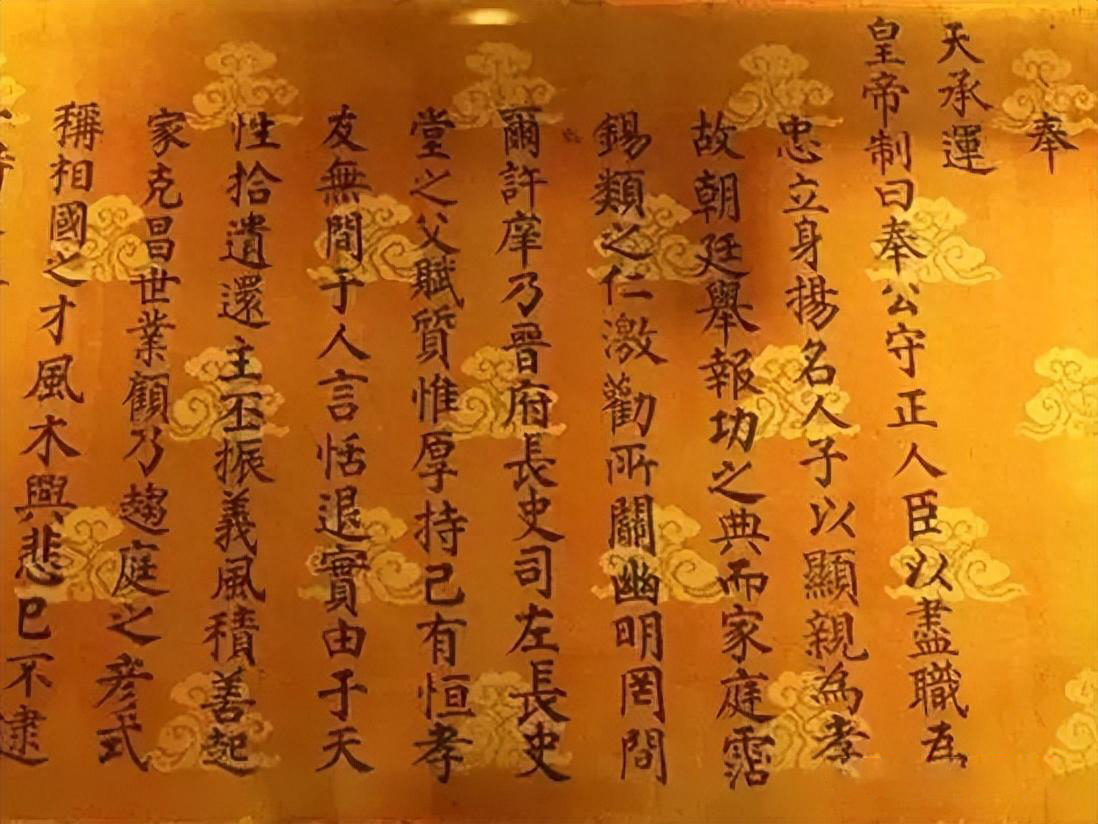 奉
天承運
皇帝制曰奉公守正人臣以盡職為
忠立身揚名人子以顯親為孝
故朝廷舉報功之典而家庭霑
錫類之仁激勸所關幽明罔間
爾許庠乃晉府長史司左長史
堂之父賦質惟厚持己有恒孝
友無間于人言恬退實由于天
性拾遺還主丕振義風積善起
家克昌世業顧乃趨庭之彥式
稱相國之才風木興悲已不逮